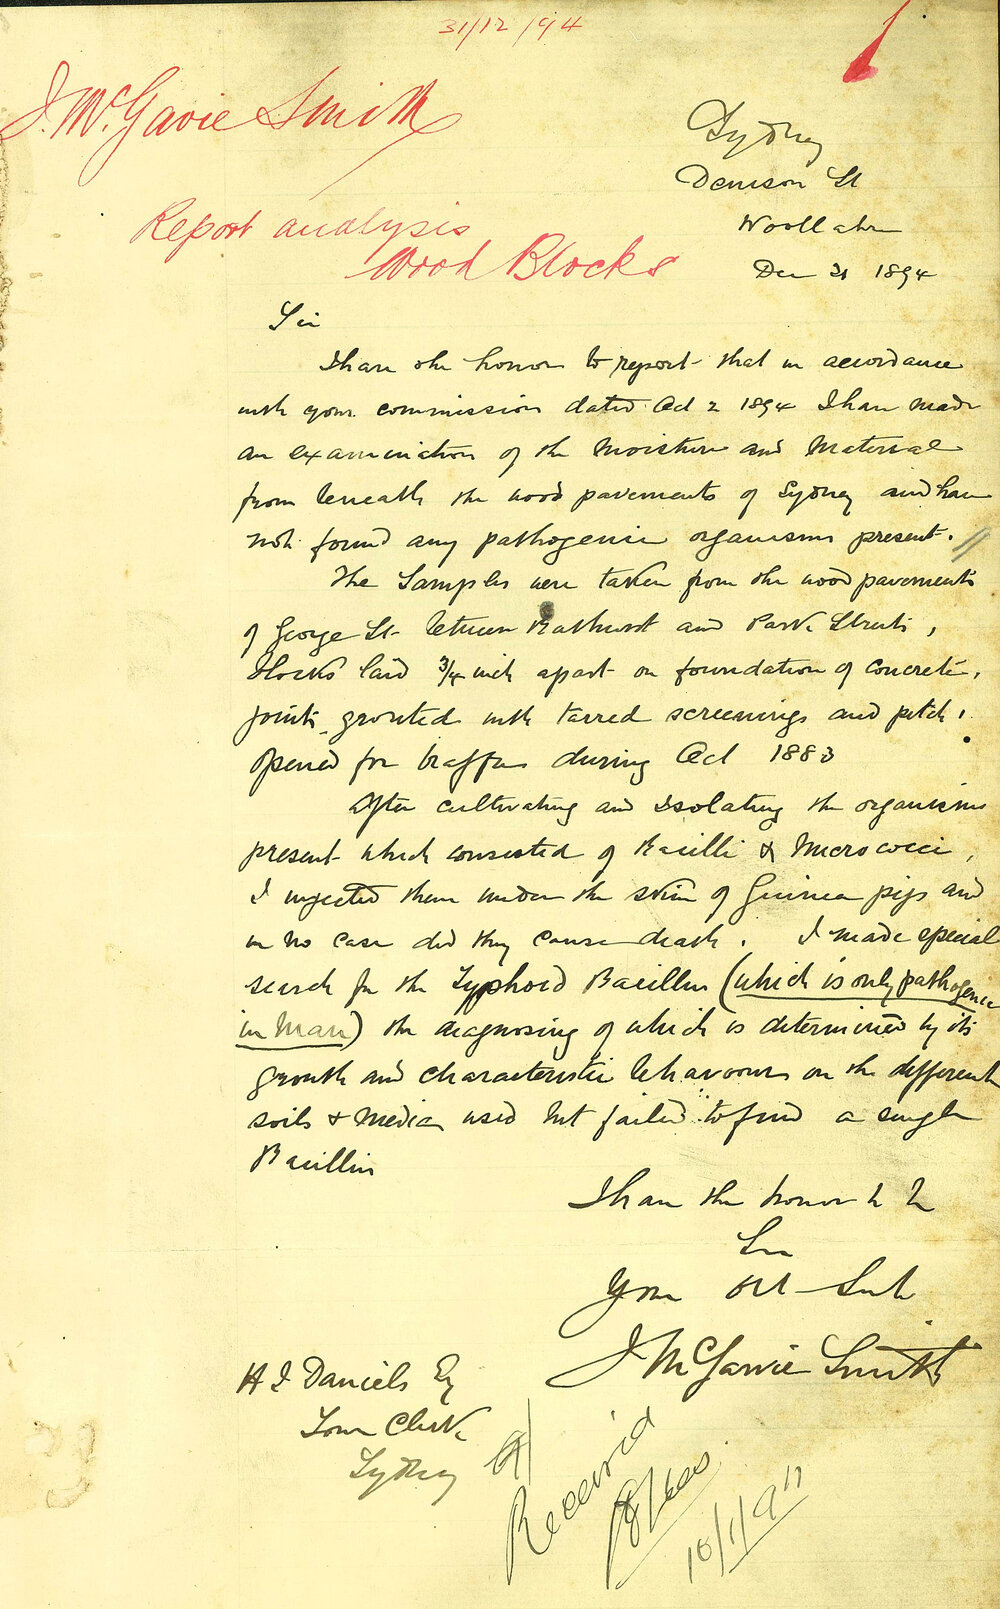 31/12/94
J. McGavie Smith
Report analysis
Wood Blocks
Sydney
Denison St
Woollahra
Dec 31 1894
Sir
I have the honor to report that in accordance
with your commission dated Oct 2 1894 I have made
an examination of the Moisture and Material
from beneath the wood pavements of Sydney and have
not found any pathogenic organisms present.
The Samples were taken from the wood pavements
of George St between Bathurst and Park Streets,
Blocks laid 3/4 inch apart on foundation of concrete,
joints grouted with tarred screenings and pitch,
opened for traffic during Oct 1883
After cultivating and Isolating the organisms
present which consisted of Bacilli & Micrococci,
I injected them under the skin of Guinea pigs and
in no case did they cause death. I made special
search for the Typhoid Bacillus (which is only pathogenic
in Man) the diagnosing of which is determined by its
growth and characteristic behaviours on the different
soils & media used but failed to find a single
Bacillus
I have the honor to be
Sir
Your Obt Svt
J McGarvie Smith
H J Daniels Esq
Town Clerk
Sydney
Received